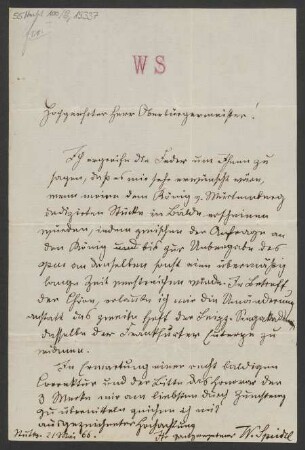 W S
Hochgeehrter Herr Oberbürgermeister!
Ich ergreife die Feder um Ihnen zu
sagen, daß es mir sehr erwünscht wäre,
wenn meine dem König v. Württemberg
dedizirten Stücke in Bälde erscheinen
würden, indem zwischen der Anfrage an
den König und bis zur Übergabe des
opus an denselben sonst eine übermäßig
lange Zeit verstreichen würde. In Betreff
der Chöre, erlaube ich mir die Veränderung
anstatt das zweite Heft der
dasselbe der Frankfurter Euterpe zu
widmen.
In Erwartung einer recht baldigen
Correktur und der Bitte das Honorar der
3 Werke mir am liebsten durch
zu übermitteln zeichne ich mit
ausgezeichneter Hochachtung
Stuttg. 21 Mai 66. Ihr ergebener W. Speidel